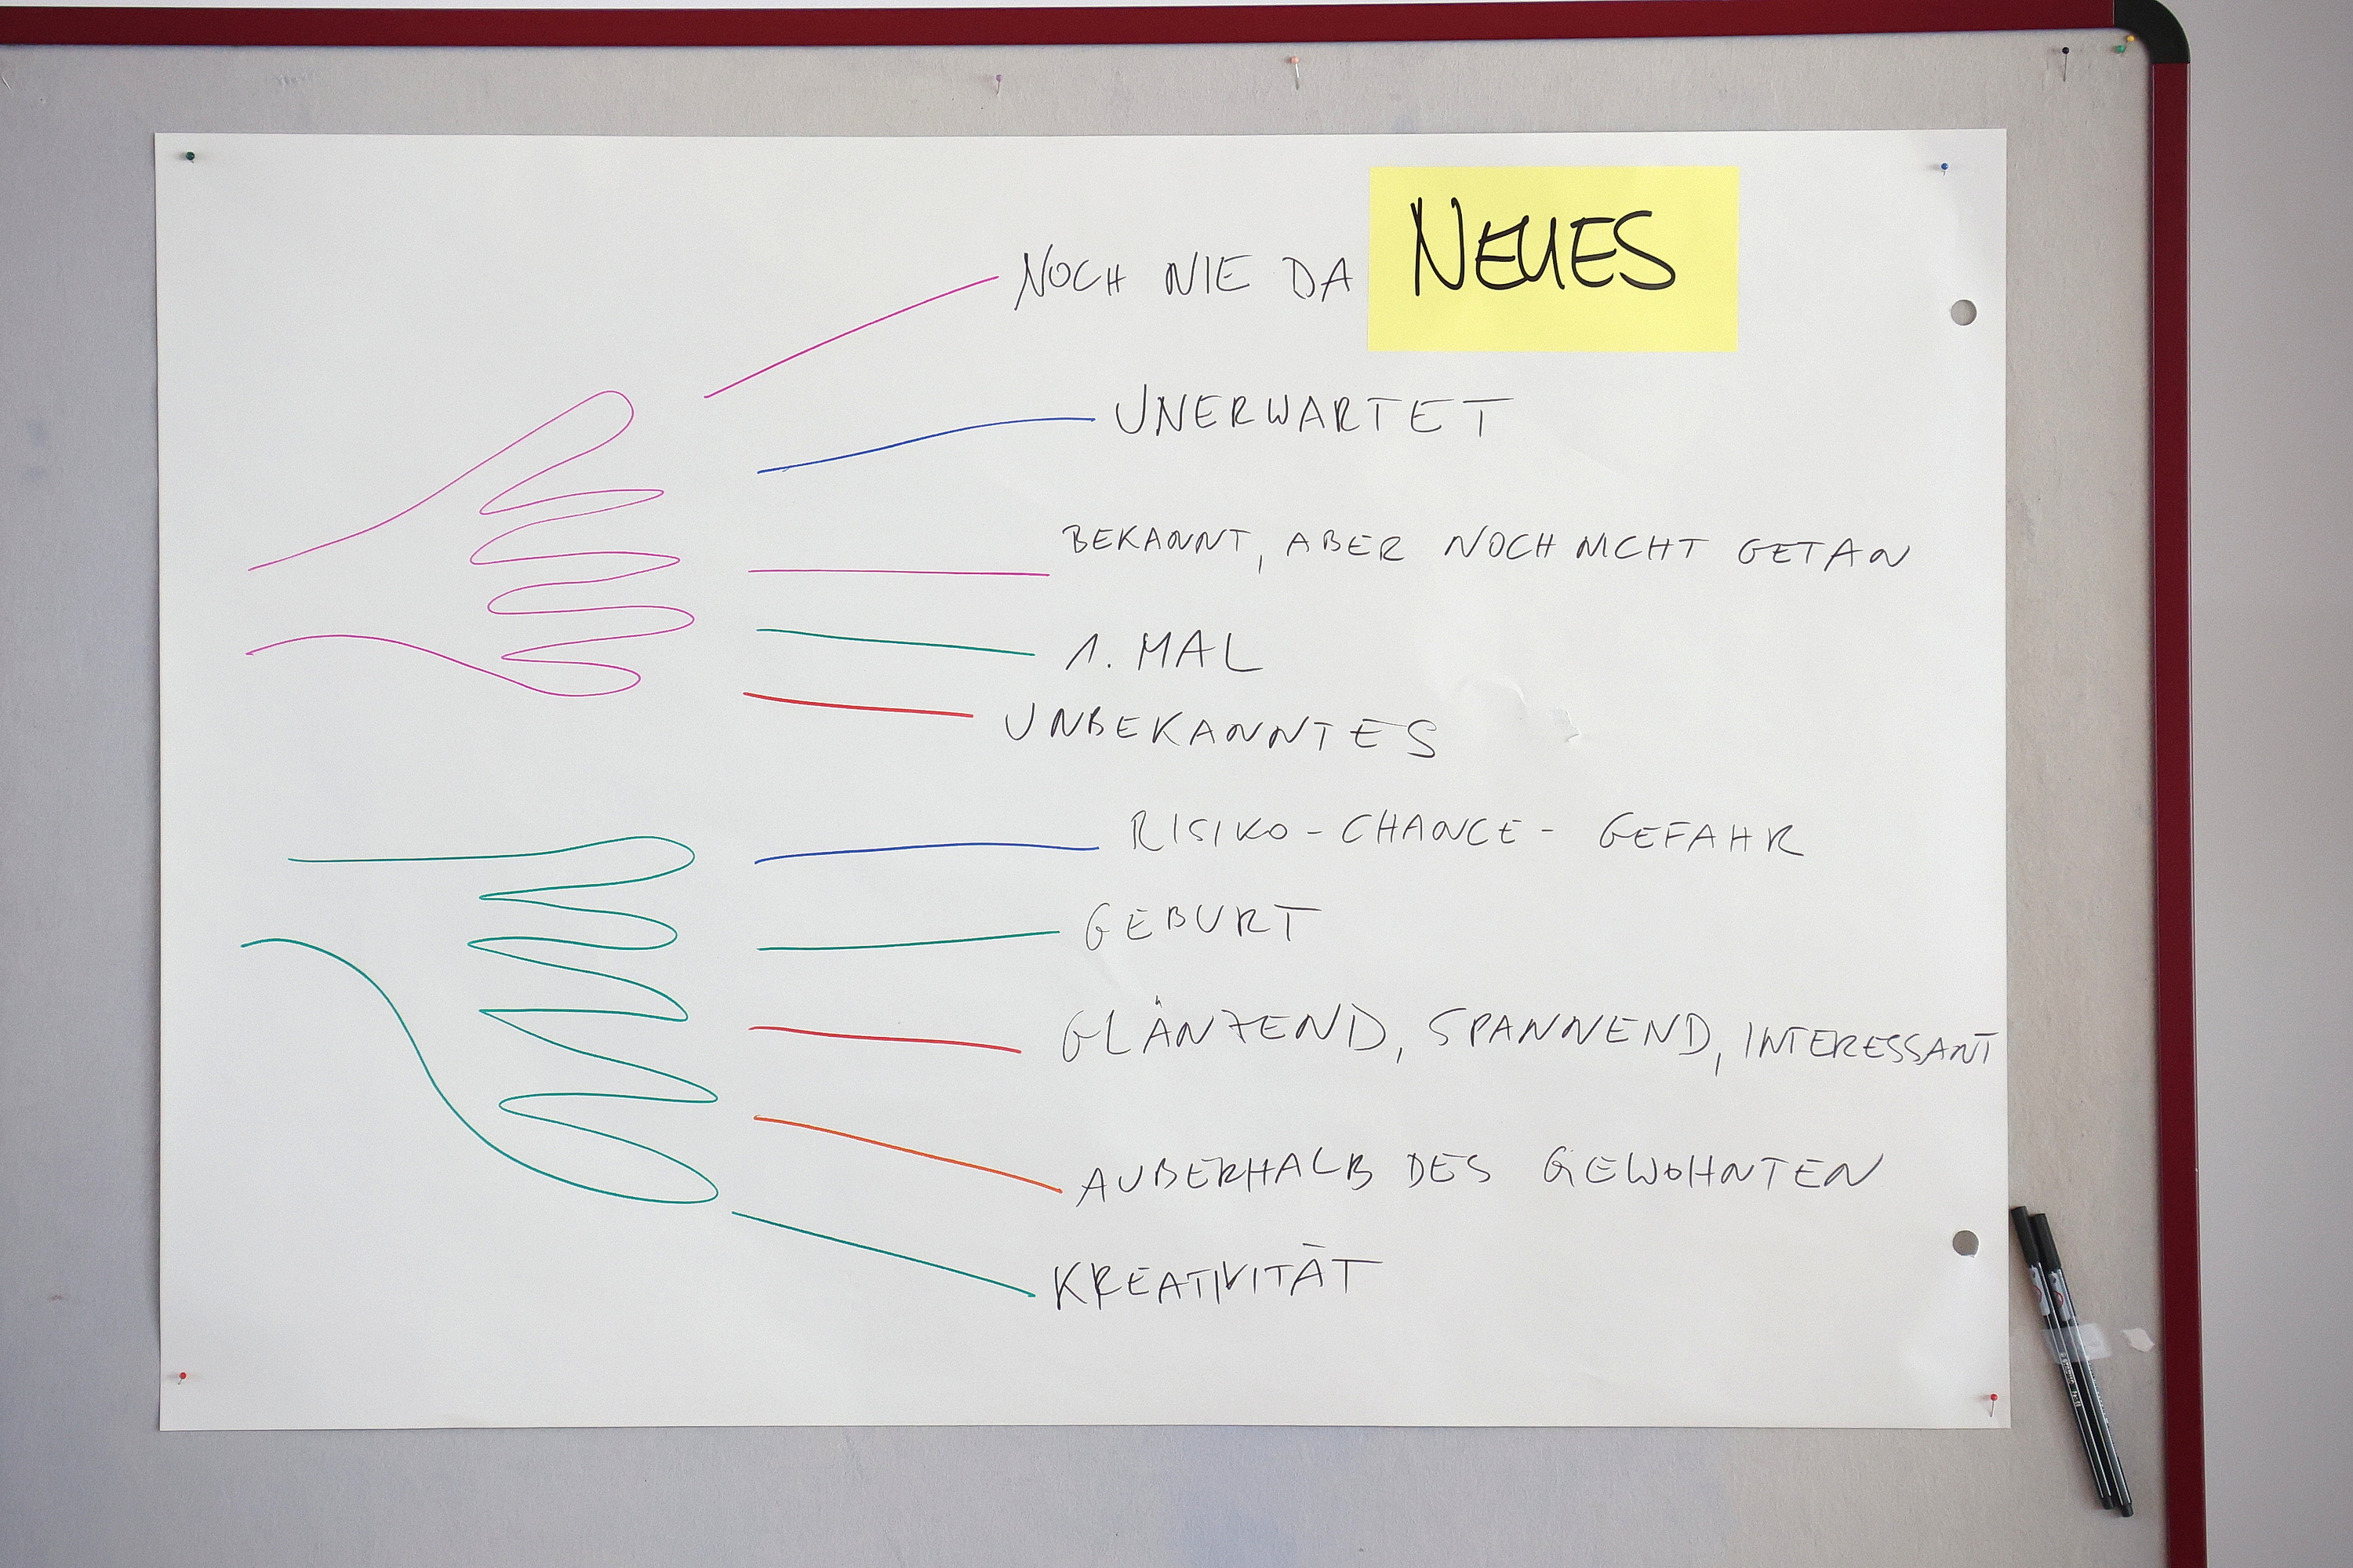 NOCH NIE DA NEUES
UNERWARTET
BEKANNT, ABER NOCH NICHT GETAN
1. MAL
UNBEKANNTES
RISIKO - CHANCE - GEFAHR
GEBURT
GLÄNZEND, SPANNEND, INTERESSANT
AUßERHALB DES GEWOHNTEN
KREATIVITÄT